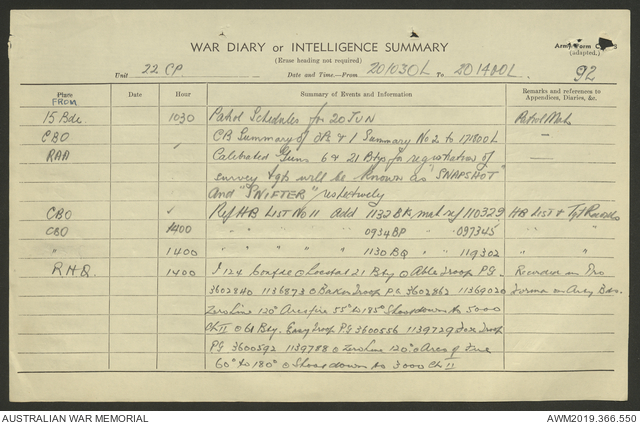 WAR DIARY or INTELLIGENCE SUMMARY
(Erase heading not required)
Army Form
(adapted.)
Unit 22 CP Date and Time—From 201030L To 201400L. 92
Place Date Hour Summary of Events and Information Remarks and references to Appendices, Diaries, &c.
FROM
15 Bde. 1030 Patrol Schedules for 20 JUN Patrol Mat
CBO CB Summary of & 1 Summary No 2 to 171800L —
RAA Calibrated Guns 6 & 21 Btys for registration of —
survey tgts will be known as "SNAPSHOT"
and "SNIFTER" respectively
CBO Ref HB LIST No 11 add 1132 BK map ref 110329 HB LIST & Tgt Records
CBO 1400 " " " 0934 BP " " 097345
" 1400 " " " 1130 BQ " " 119302
R.H.Q. 1400 I 124 Confde o Locstat 21 Bty o Able Troop PG Recorded in Pro
3602840 1136873 o Baker Troop PG 3602862 1136902 o Forma on Arty Bds.
Zero Line 120° Arcs fire 55° to 185° Shoos down to 5000
o 61 Bty. Easy Troop PG 3600556 1139729 Fox Troop
PG 3600592 1139788 o Zero Line 120° o Arcs of fire
60° to 180° o down to 3000
AUSTRALIAN WAR MEMORIAL
AWM2019.366.550